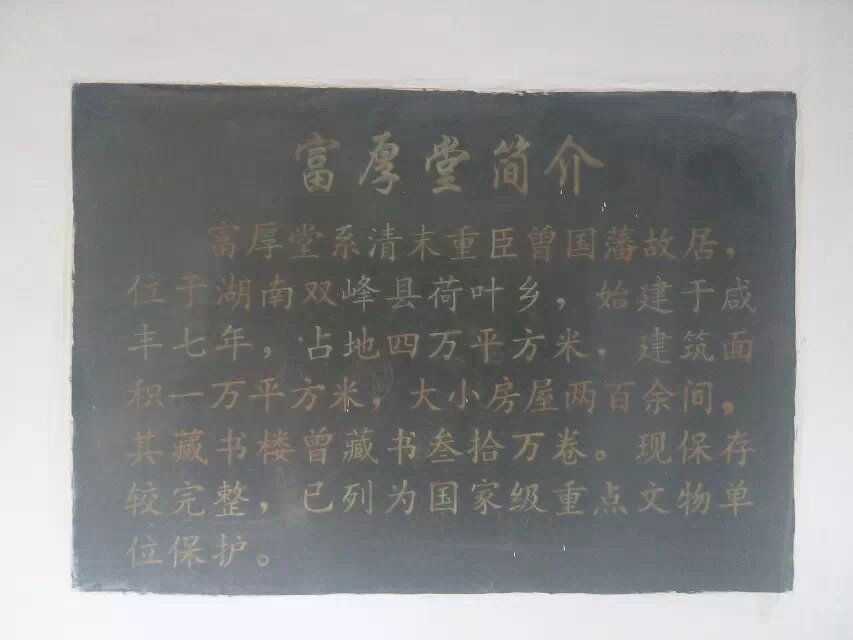 富厚堂简介
富厚堂系清末重臣曾国藩故居，
位于湖南双峰县荷叶乡，始建于咸
丰七年，占地四万平方米，建筑面
积一万平方米，大小房屋两百余间，
其藏书楼曾藏书叁拾万卷。现保存
较完整，已列为国家级重点文物单
位保护。